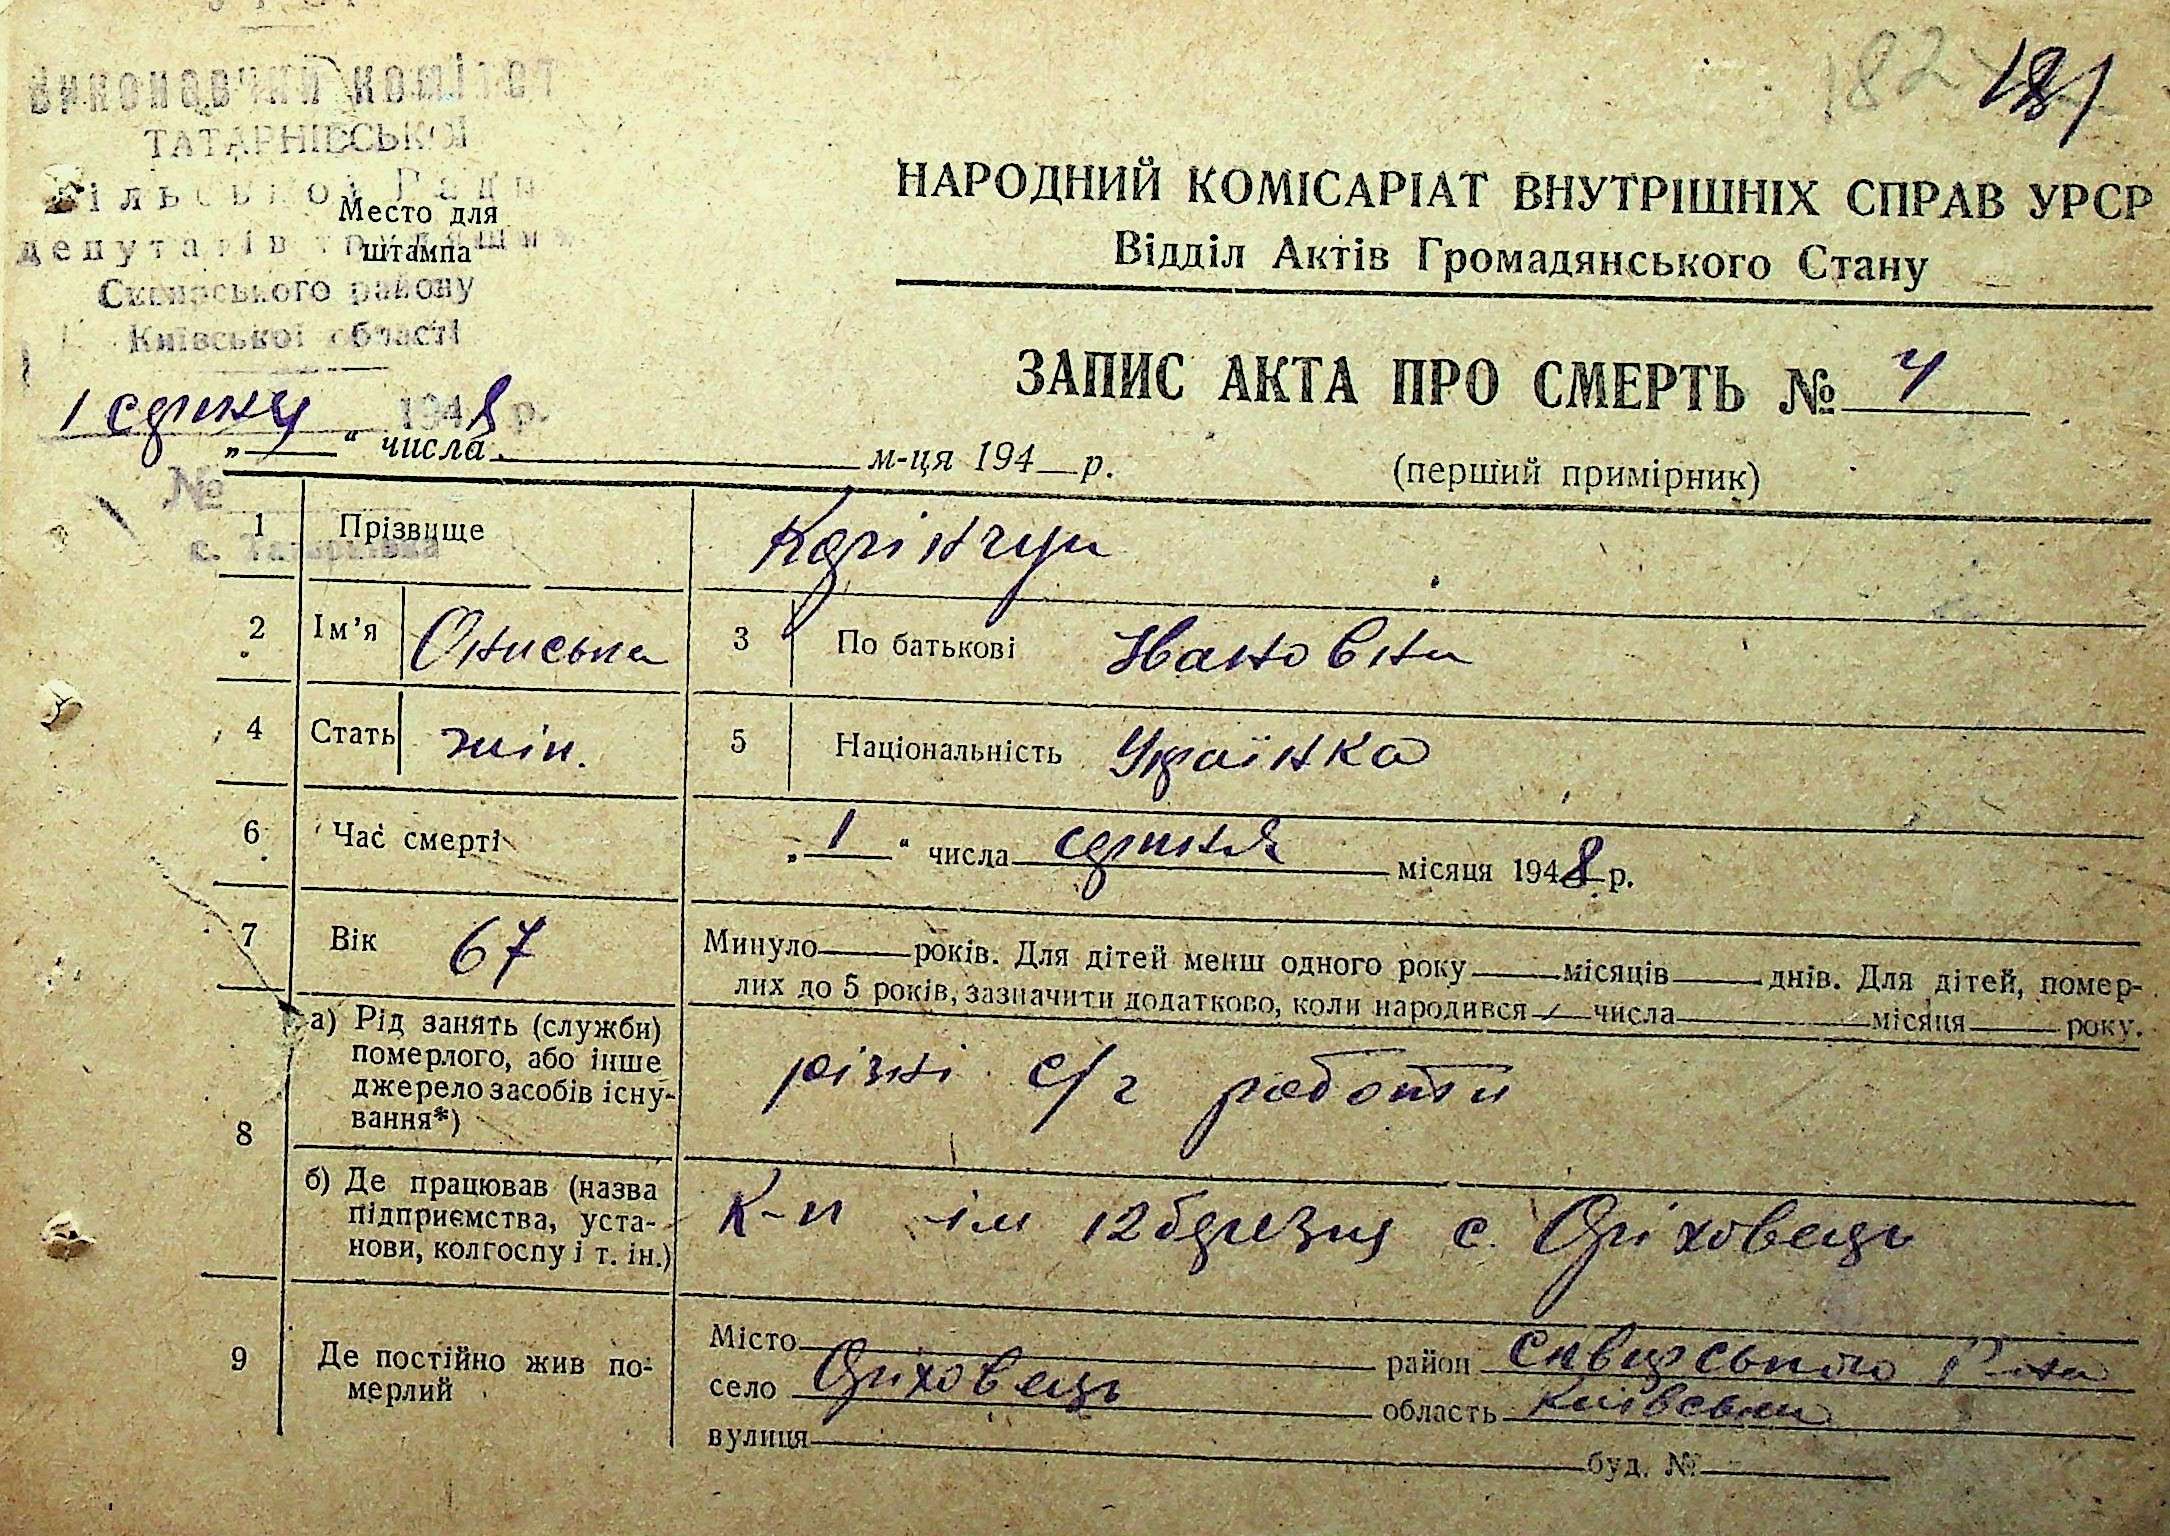 182 181
ВИКОНАВЧИЙ КОМІТЕТ
ТАТАРНІВСЬКОЇ
Сільської Ради
Место для
депутатів трудящих
штампа
Сквирського району
Київської області
НАРОДНИЙ КОМІСАРІАТ ВНУТРІШНІХ СПРАВ УРСР
Відділ Актів Громадянського Стану
ЗАПИС АКТА ПРО СМЕРТЬ № 4
1 серпня 1948 р.
„ “ числа м-ця 194 р.
(перший примірник)
№
1 Прізвище
2 Ім’я Ониська 3 По батькові Ивановна
4 Стать жін. 5 Національність Українка
6 Час смерті „ 1 “ числа серпня місяця 1948 р.
7 Вік 67 Минуло років. Для дітей менш одного року місяців днів. Для дітей, помер-
лих до 5 років, зазначити додатково, коли народився числа місяця року.
8 а) Рід занять (служби)
померлого, або інше
джерело засобів існу-
вання*)
різні с/г роботи
б) Де працював (назва
підприємства, уста-
нови, колгоспу і т. ін.)
К-п ім 12 березня с. Оріховець
9 Де постійно жив по-
мерлий
Місто район Сквирського р-на
село Оріховець область Київська
вулиця буд. №